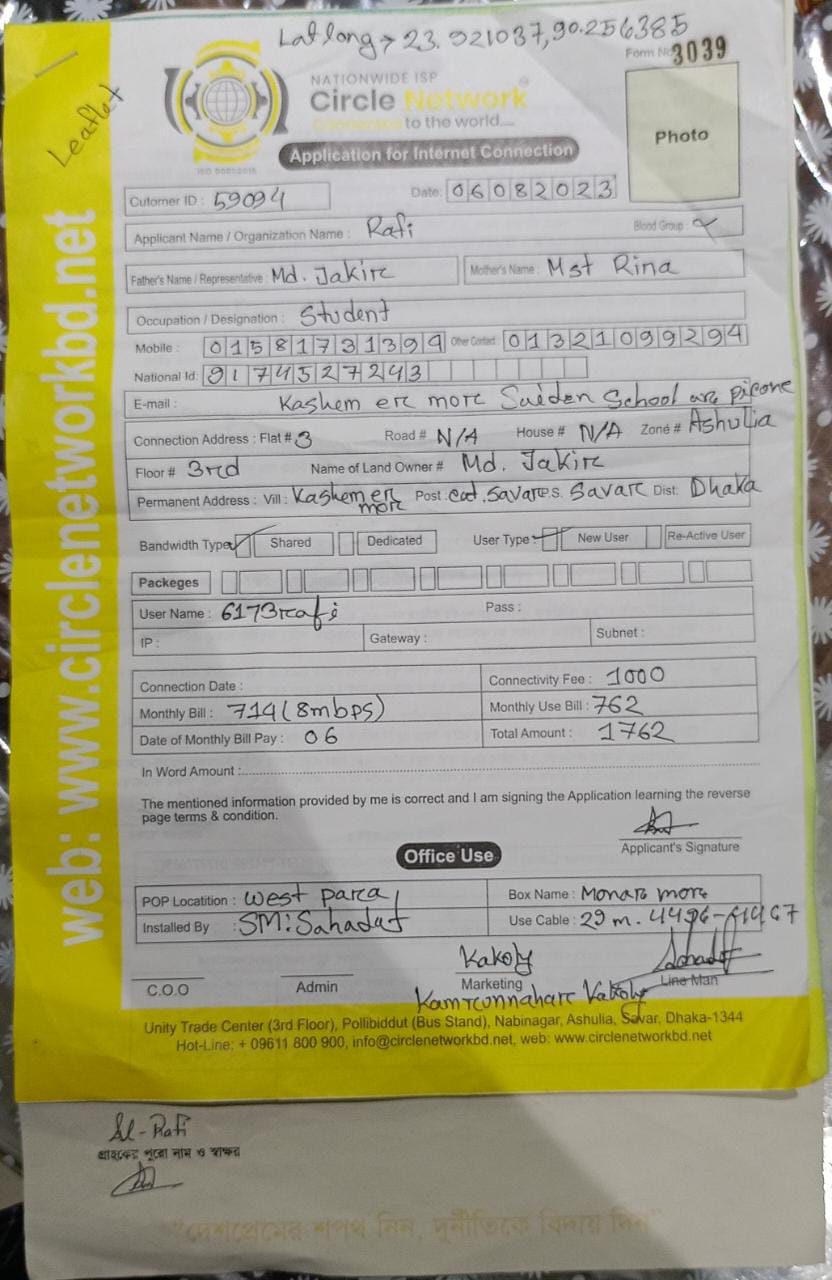 Lat long > 23.921037,90.256385
Form No 3039
Leaflet
NATIONWIDE ISP
Circle Network
Connected to the world....
ISO 9001:2015
Application for Internet Connection
Photo
Cutomer ID : 59094
Date: 06082023
Applicant Name / Organization Name : Rafi
Blood Group :
Father's Name / Representative : Md. Jakir
Mother's Name : Mst Rina
Occupation / Designation : Student
Mobile : 01581731399 Other Contact : 01321099294
National Id: 9174527243
E-mail : Kashem er more Saiden School ar pisone
Connection Address : Flat # 3 Road # N/A House # N/A Zone # Ashulia
Floor # 3rd Name of Land Owner # Md. Jakir
Permanent Address : Vill : Kashem er more Post : cat. Savar P.S. Savar Dist: Dhaka
Bandwidth Type Shared Dedicated User Type : New User Re-Active User
Packeges
User Name : 6173rafi Pass :
IP : Gateway : Subnet :
Connection Date : Connectivity Fee : 1000
Monthly Bill : 714 (8mbps) Monthly Use Bill : 762
Date of Monthly Bill Pay : 06 Total Amount : 1762
In Word Amount :
The mentioned information provided by me is correct and I am signing the Application learning the reverse
page terms & condition.
Applicant's Signature
Office Use
POP Locatition : west para Box Name : Monar more
Installed By : SM: Sahadat Use Cable : 29 m. 4496-4467
Kakoly
C.O.O Admin Marketing Line Man
Kamrunnahar Kakoly
Unity Trade Center (3rd Floor), Pollibiddut (Bus Stand), Nabinagar, Ashulia, Savar, Dhaka-1344
Hot-Line: + 09611 800 900, info@circlenetworkbd.net, web: www.circlenetworkbd.net
web: www.circlenetworkbd.net
Al-Rafi
গ্রাহকের পুরো নাম ও স্বাক্ষর
"দেশপ্রেমের শপথ নিন, দুর্নীতিকে বিদায় দিন"